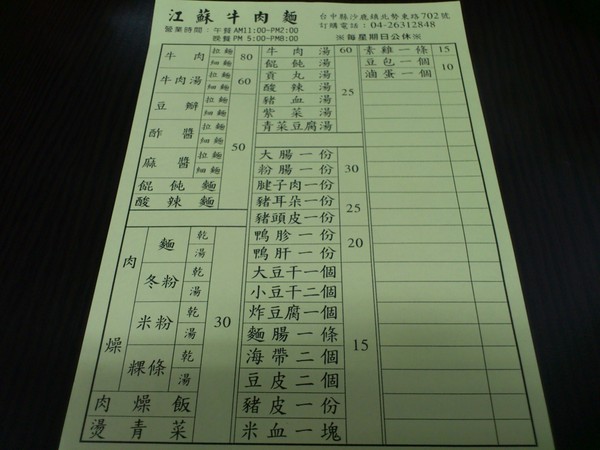 江蘇牛肉麵
台中縣沙鹿鎮北勢東路702號
訂購電話：04-26312848
營業時間：午餐AM11:00~PM2:00
晚餐PM 5:00~PM8:00
※每星期日公休※
牛肉 拉麵 細麵 80
牛肉湯 拉麵 細麵 60
豆瓣 拉麵 細麵
酢醬 拉麵 細麵 50
麻醬 拉麵 細麵
餛飩麵
酸辣麵
肉燥 麵 乾 湯 30
冬粉 乾 湯
米粉 乾 湯
粿條 乾 湯
肉燥飯
燙青菜
牛肉湯 60
餛飩湯
貢丸湯
酸辣湯 25
豬血湯
紫菜湯
青菜豆腐湯
大腸一份
粉腸一份 30
腱子肉一份
豬耳朵一份 25
豬頭皮一份
鴨胗一份 20
鴨肝一份
大豆干一個
小豆干二個
炸豆腐一個
麵腸一條 15
海帶二個
豆皮二個
豬皮一份
米血一塊
素雞一條 15
豆包一個 10
滷蛋一個